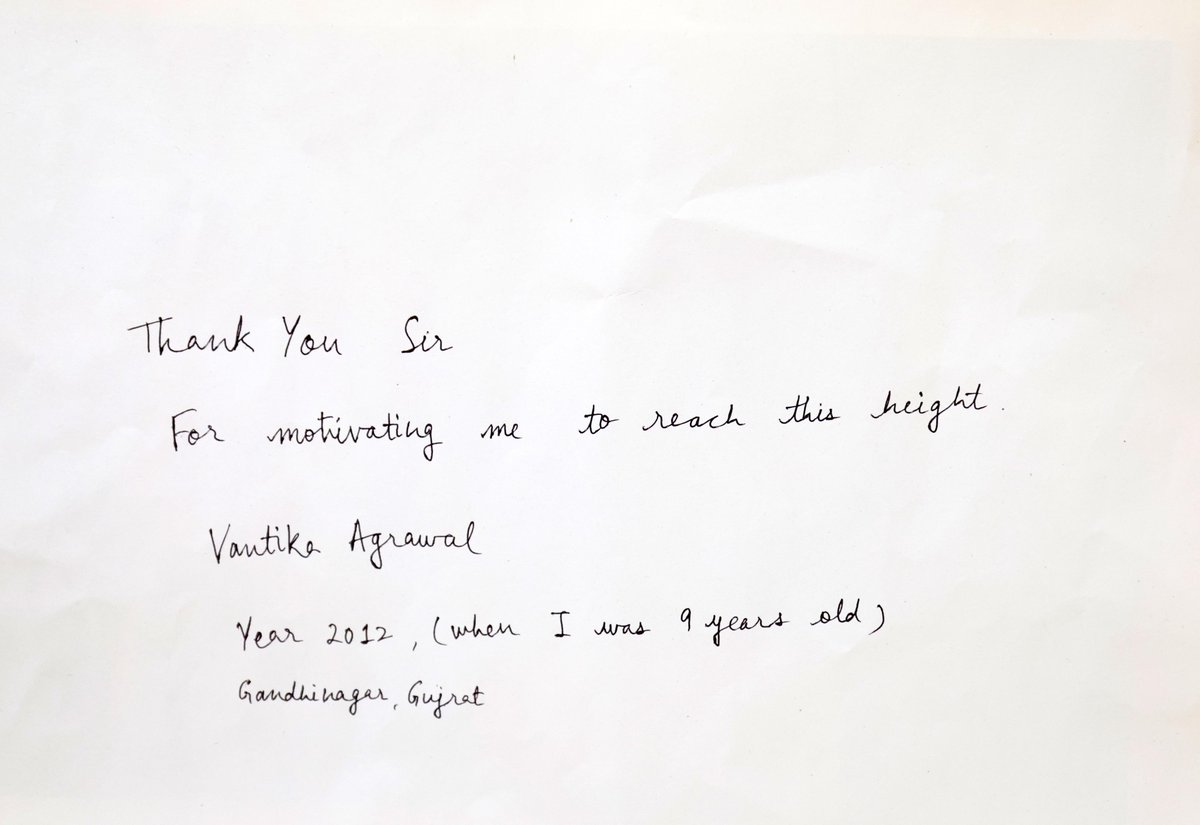 Thank You Sir
For motivating me to reach this height.
Vantika Agrawal
Year 2012, (when I was 9 years old)
Gandhinagar, Gujrat